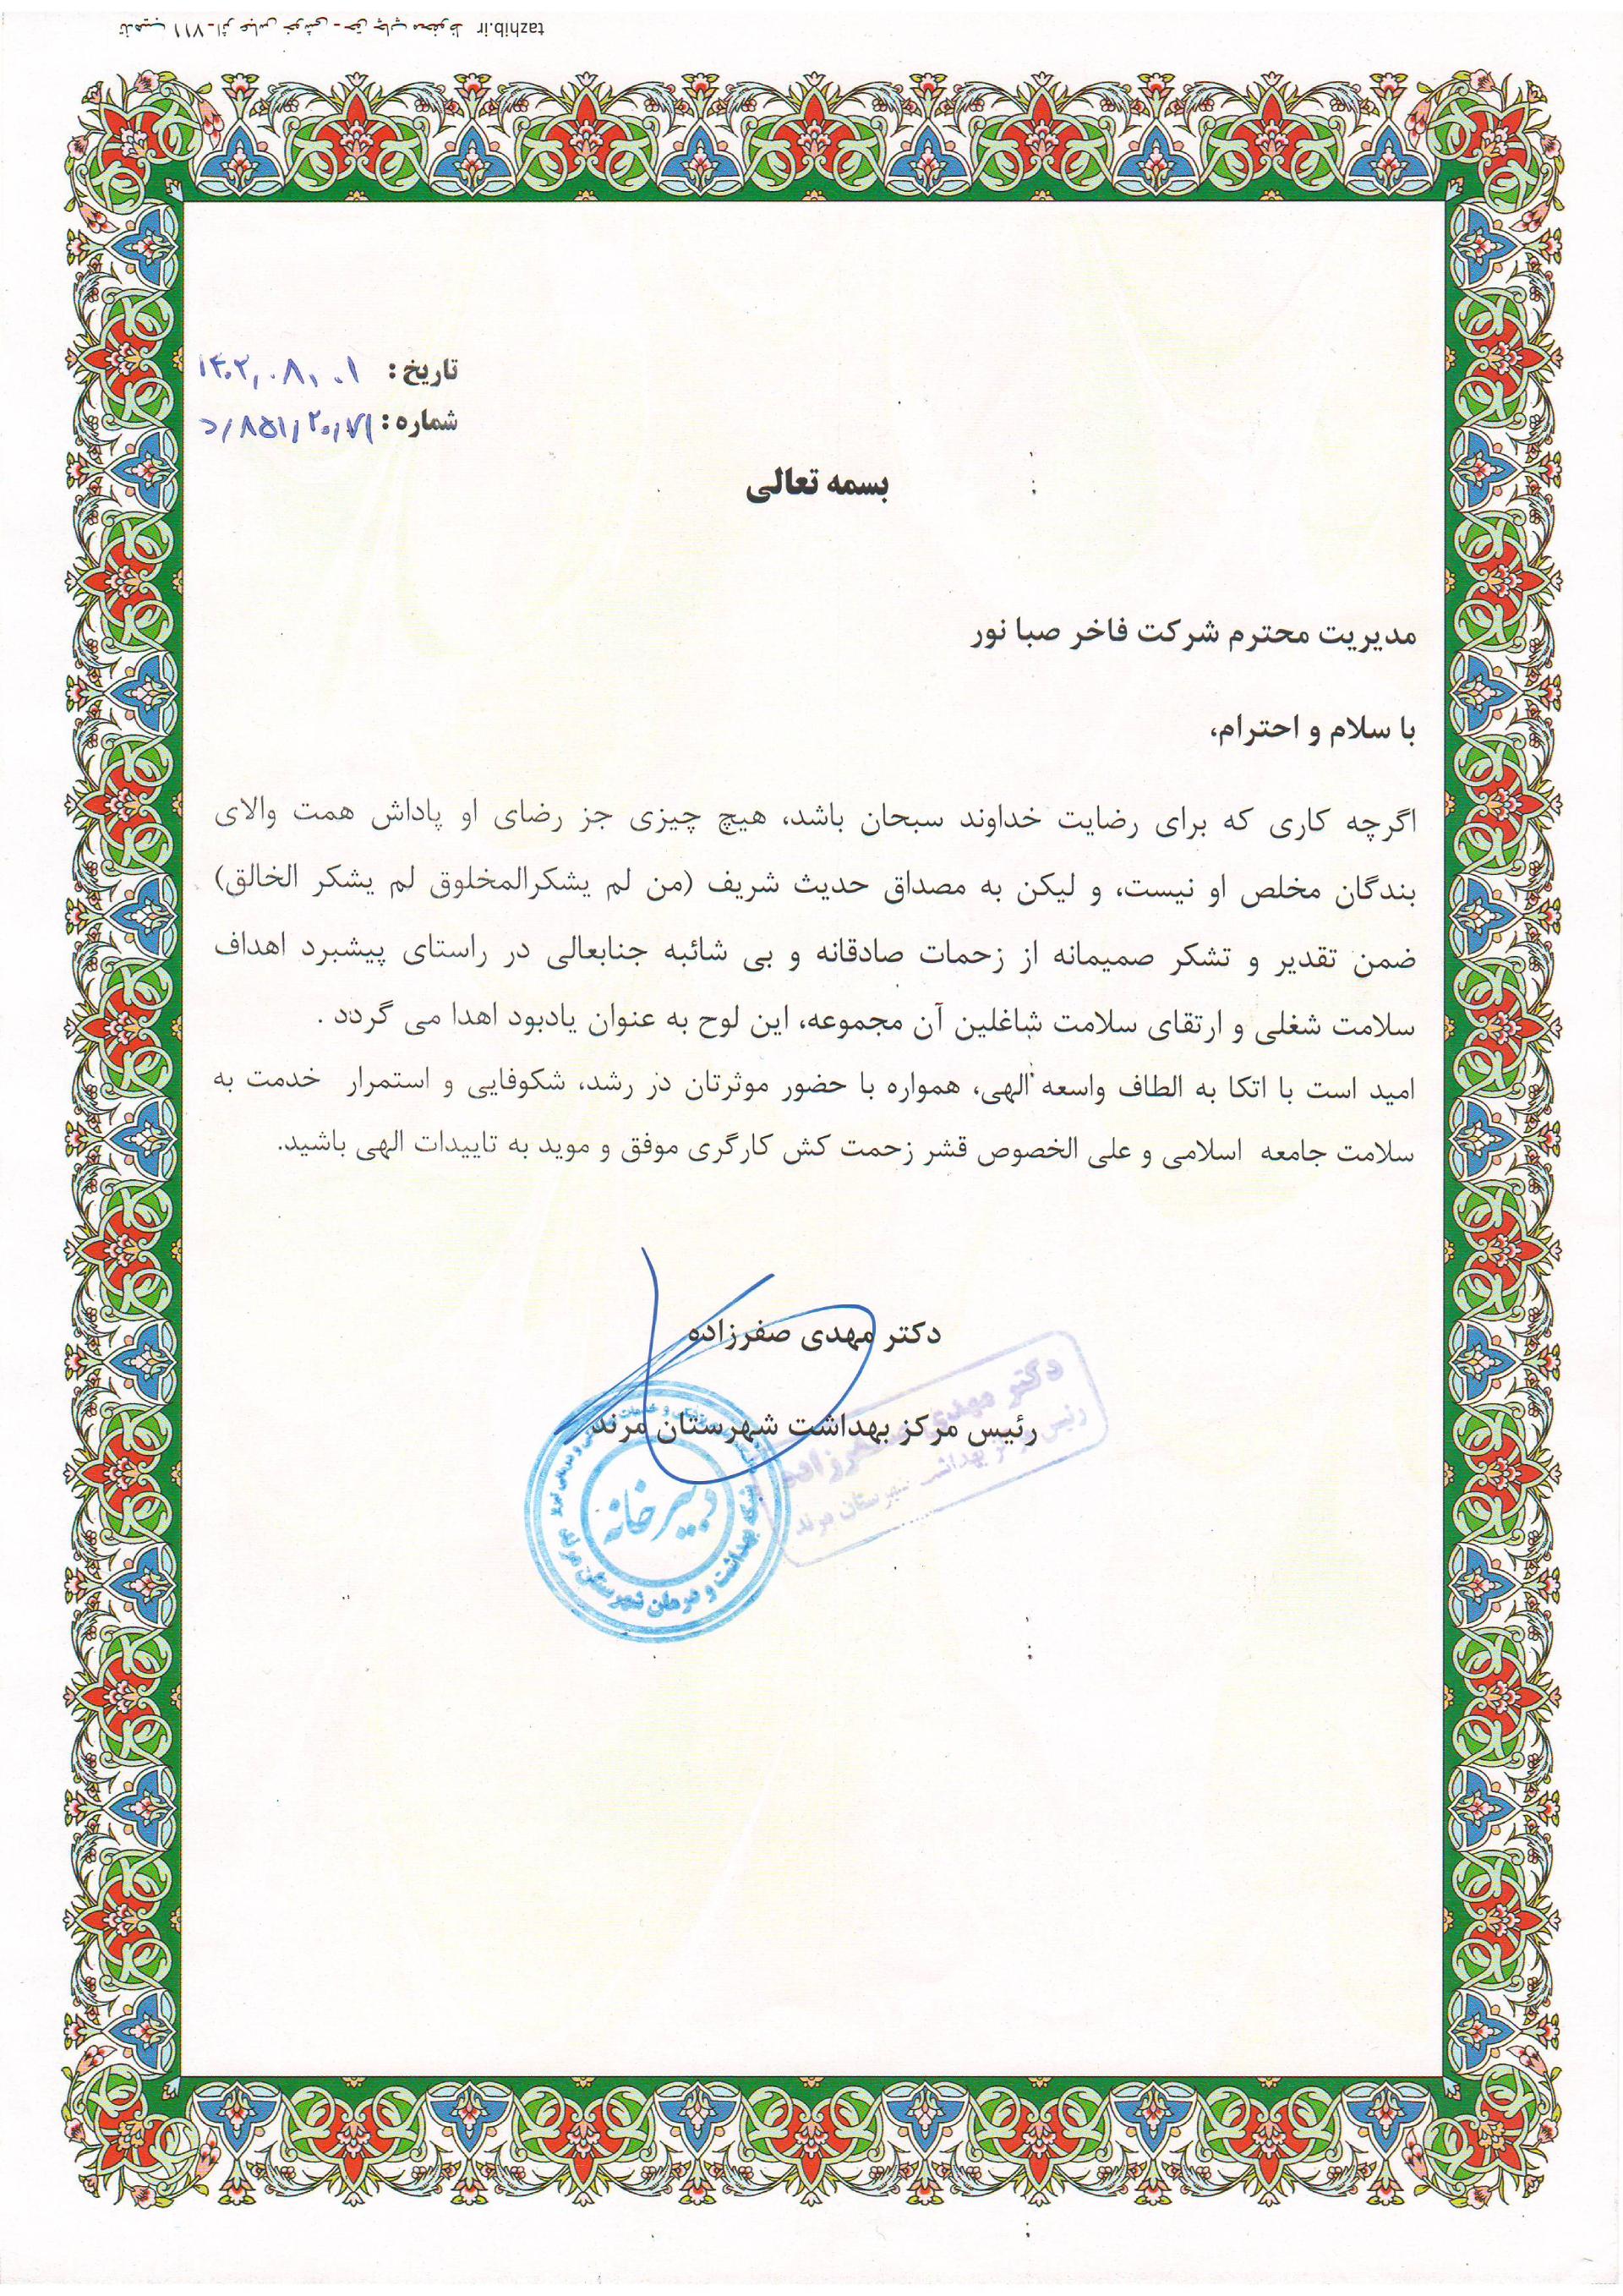 تاریخ : ۱۴۰۲,۰۸,۰۱
شماره : د/۸۵۱/۲۰۷۱
بسمه تعالی
مدیریت محترم شرکت فاخر صبا نور
با سلام و احترام،
اگرچه کاری که برای رضایت خداوند سبحان باشد، هیچ چیزی جز رضای او پاداش همت والای
بندگان مخلص او نیست، و لیکن به مصداق حدیث شریف (من لم یشکرالمخلوق لم یشکر الخالق)
ضمن تقدیر و تشکر صمیمانه از زحمات صادقانه و بی شائبه جنابعالی در راستای پیشبرد اهداف
سلامت شغلی و ارتقای سلامت شاغلین آن مجموعه، این لوح به عنوان یادبود اهدا می گردد .
امید است با اتکا به الطاف واسعه الهی، همواره با حضور موثرتان در رشد، شکوفایی و استمرار خدمت به
سلامت جامعه اسلامی و علی الخصوص قشر زحمت کش کارگری موفق و موید به تاییدات الهی باشید.
دکتر مهدی صفرزاده
رئیس مرکز بهداشت شهرستان مرند
دکتر مهدی صفرزاده
رئیس مرکز بهداشت شهرستان مرند
دبیرخانه
شبکه بهداشت و درمان شهرستان مرند
tazhib.ir